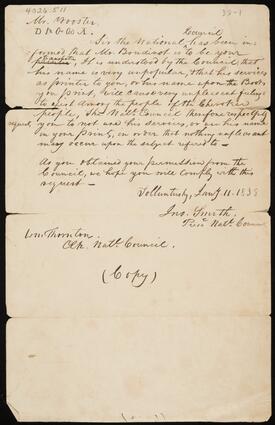 4026.511
39-1
Mr. Wooster
D
Council
Sir the National, has been in-
formed that Mr. Boudinot is to be your
It is understood by the Council that
his name is very unpopular, that his services
as printer to you, or his name upon the Books
you print, will cause very unpleasant feelings
to exist among the people of the Cherokee
people, The Natl. Council therefore respectfully
request you to not use his services, or use his name
in your print, in order that nothing unpleasant
may occur upon the subject referred to —
As you obtained your permission from the
Council, we hope you will comply with this
request —
Jany. 11. 1839
Jno. Smith.
Natl.
Wm. Thornton.
Clk. Natl. Council.
(Copy)